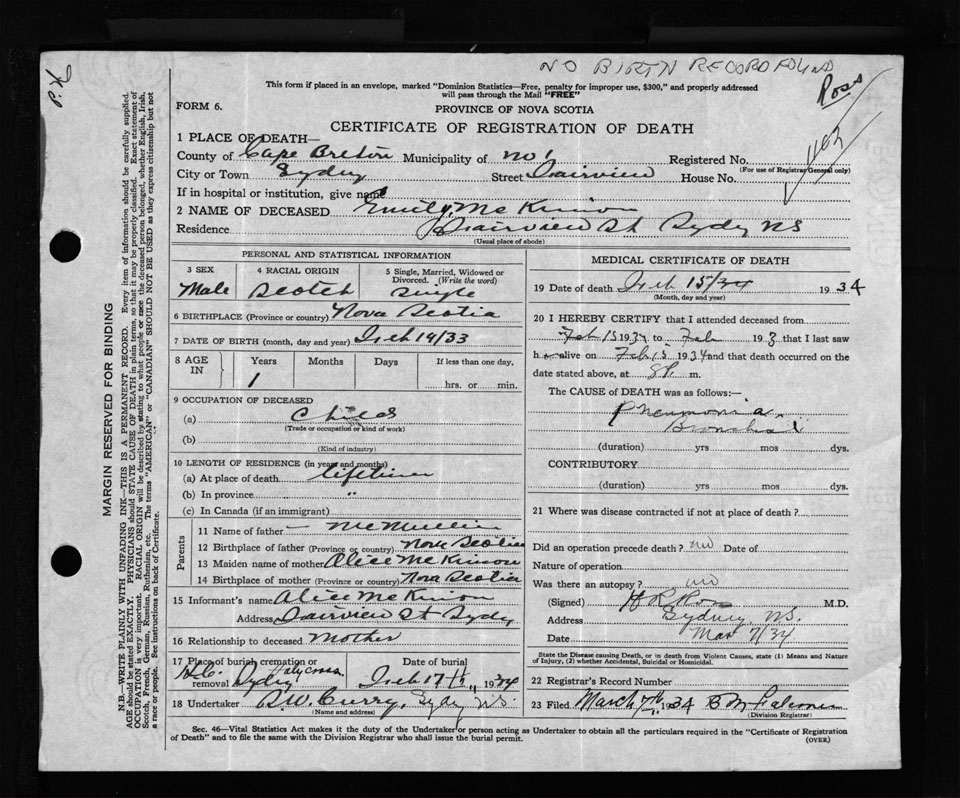 NO BIRTH RECORD FOUND
P.X
Ross
1163
This form if placed in an envelope, marked "Dominion Statistics—Free, penalty for improper use, $300," and properly addressed
will pass through the Mail "FREE"
FORM 6.
PROVINCE OF NOVA SCOTIA
CERTIFICATE OF REGISTRATION OF DEATH
1 PLACE OF DEATH—
County of Cape Breton Municipality of No 1 Registered No.
(For use of Registrar General only)
City or Town Sydney Street Fairview House No.
If in hospital or institution, give name
2 NAME OF DECEASED Emily McKinnon
Residence Fairview St Sydney NS
(Usual place of abode)
PERSONAL AND STATISTICAL INFORMATION
3 SEX
Male
4 RACIAL ORIGIN
Scotch
5 Single, Married, Widowed or
Divorced. (Write the word)
Single
6 BIRTHPLACE (Province or country) Nova Scotia
7 DATE OF BIRTH (month, day and year) Feb 14/33
8 AGE IN
Years Months Days If less than one day,
1
hrs. or min.
9 OCCUPATION OF DECEASED
(a) Child
(Trade or occupation or kind of work)
(b)
(Kind of industry)
10 LENGTH OF RESIDENCE (in years and months)
(a) At place of death lifetime
(b) In province "
(c) In Canada (if an immigrant)
Parents
11 Name of father — McMullin
12 Birthplace of father (Province or country) Nova Scotia
13 Maiden name of mother Alice McKinnon
14 Birthplace of mother (Province or country) Nova Scotia
15 Informant's name Alice McKinnon
Address Fairview St Sydney
16 Relationship to deceased Mother
17 Place of burial cremation or
removal Holy Cross Sydney
Date of burial
Feb 17th, 1934
18 Undertaker A.W. Curry, Sydney N.S.
(Name and address)
MEDICAL CERTIFICATE OF DEATH
19 Date of death Feb 15/34 1934
(Month, day and year)
20 I HEREBY CERTIFY that I attended deceased from
Feb 15 1934 to Feb 193 that I last saw
h alive on Feb 15 1934 and that death occurred on the
date stated above, at 8 P. m.
The CAUSE OF DEATH was as follows:—
Pneumonia
Bronchial
(duration) yrs mos dys.
CONTRIBUTORY
(duration) yrs mos dys.
21 Where was disease contracted if not at place of death?
Did an operation precede death? no Date of
Nature of operation
Was there an autopsy? no
(Signed) H R Ross M.D.
Address Sydney, N.S.
Date Mar 7/34
State the Disease causing Death, or in death from Violent Causes, state (1) Means and Nature
of Injury, (2) whether Accidental, Suicidal or Homicidal.
22 Registrar's Record Number
23 Filed March 7th, 1934
(Division Registrar)
Sec. 46—Vital Statistics Act makes it the duty of the Undertaker or person acting as Undertaker to obtain all the particulars required in the "Certificate of Registration
of Death" and to file the same with the Division Registrar who shall issue the burial permit.
(OVER)
MARGIN RESERVED FOR BINDING
N.B.—WRITE PLAINLY WITH UNFADING INK—THIS IS A PERMANENT RECORD. Every item of information should be carefully supplied.
AGE should be stated EXACTLY. PHYSICIANS should STATE CAUSE OF DEATH in plain terms, so that it may be properly classified. Exact statement of
OCCUPATION is very important. RACIAL ORIGIN will be described by stating to what people or race the deceased person belonged, whether English, Irish,
Scotch, French, German, Russian, Ruthenian, etc. The terms "AMERICAN" or "CANADIAN" SHOULD NOT BE USED as they express citizenship but not
a race or people. See instructions on back of Certificate.